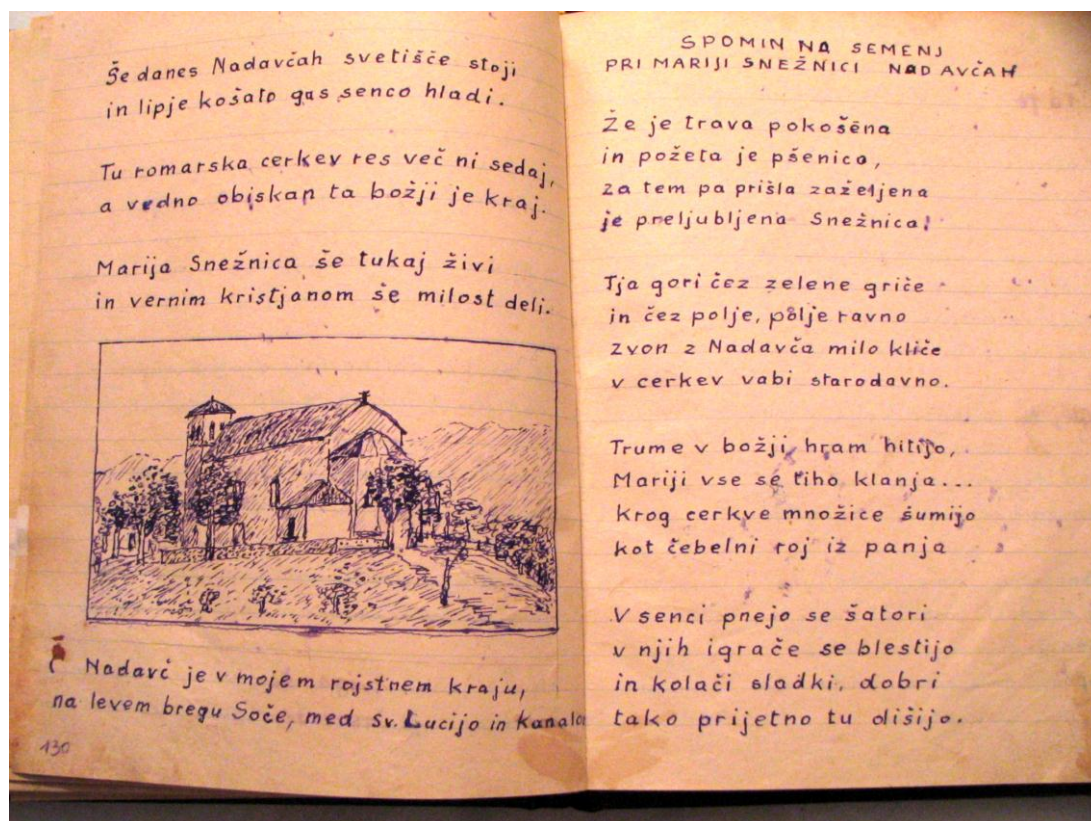 Še danes Nadavčah svetišče stoji
in lipje košato gas senco hladi.
Tu romarska cerkev res več ni sedaj,
a vedno obiskan ta božji je kraj.
Marija Snežnica še tukaj živi
in vernim kristjanom še milost deli.
Nadavč je v mojem rojstnem kraju,
na levem bregu Soče, med sv. Lucijo in Kanalom
130
SPOMIN NA SEMENJ
PRI MARIJI SNEŽNICI NAD AVČAH
Že je trava pokošena
in požeta je pšenica,
za tem pa prišla zaželjena
je preljubljena Snežnica!
Tja gori čez zelene griče
in čez polje, polje ravno
zvon z Nadavča milo kliče
v cerkev vabi starodavno.
Trume v božji hram hitijo,
Mariji vse se tiho klanja...
krog cerkve množice šumijo
kot čebelni roj iz panja
V senci pnejo se šatori
v njih igrače se blestijo
in kolači sladki, dobri
tako prijetno tu dišijo.